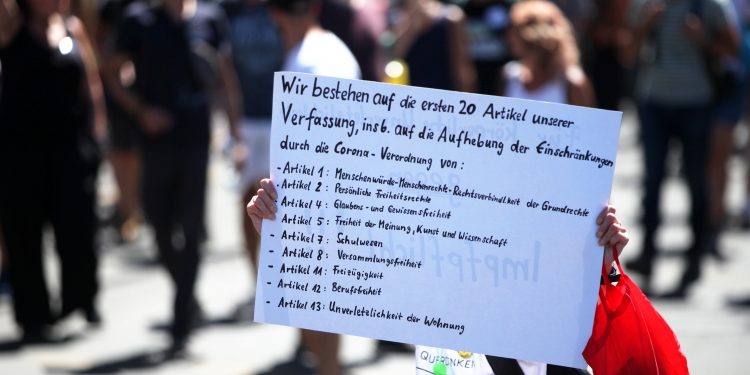 Wir bestehen auf die ersten 20 Artikel unserer
Verfassung, insb. auf die Aufhebung der Einschränkungen
durch die Corona-Verordnung von:
- Artikel 1: Menschenwürde-Menschenrechte-Rechtsverbindlkeit der Grundrechte
- Artikel 2: Persönliche Freiheitsrechte
- Artikel 4: Glaubens- und Gewissensfreiheit
- Artikel 5: Freiheit der Meinung, Kunst und Wissenschaft
- Artikel 7: Schulwesen
- Artikel 8: Versammlungsfreiheit
- Artikel 11: Freizügigkeit
- Artikel 12: Berufsfreiheit
- Artikel 13: Unverletzlichkeit der Wohnung
Impfpflicht